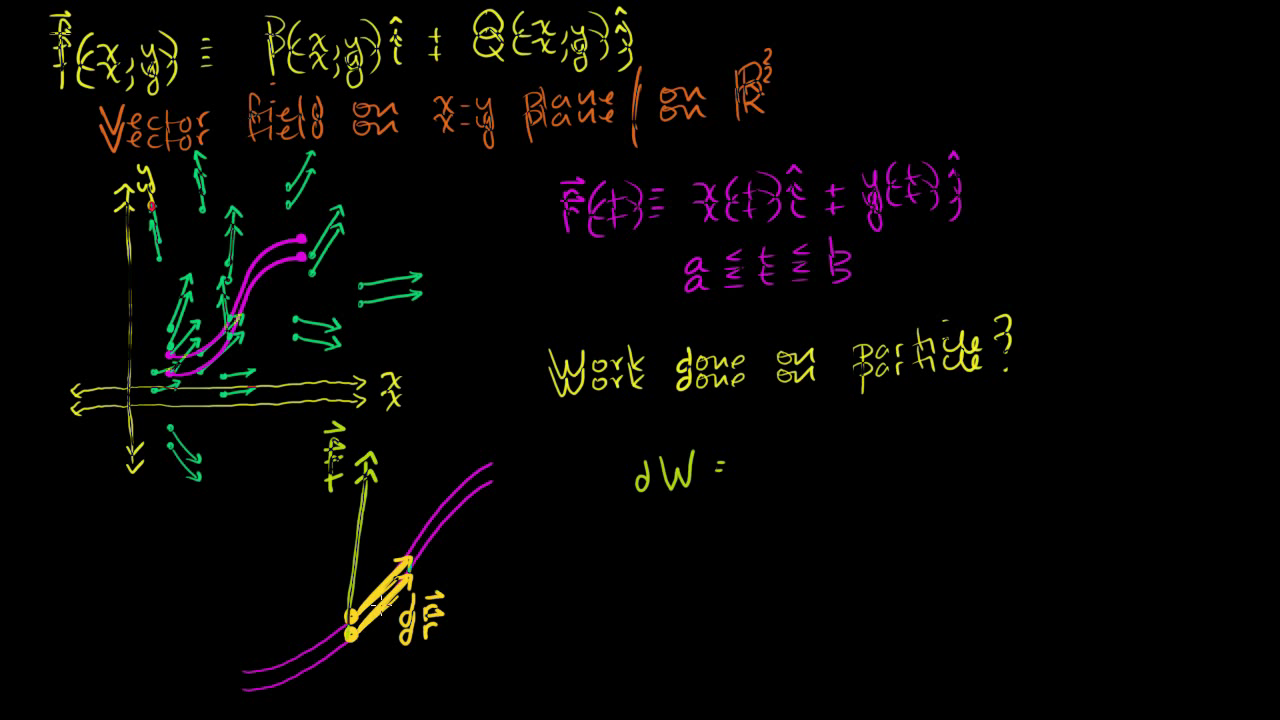 f⃗(x,y) ≡ P(x,y)î + Q(x,y)ĵ
Vector field on x-y plane / on ℝ²
y
r⃗(t) ≡ x(t)î + y(t)ĵ
a ≤ t ≤ b
Work done on particle?
x
f⃗
dW =
dr⃗